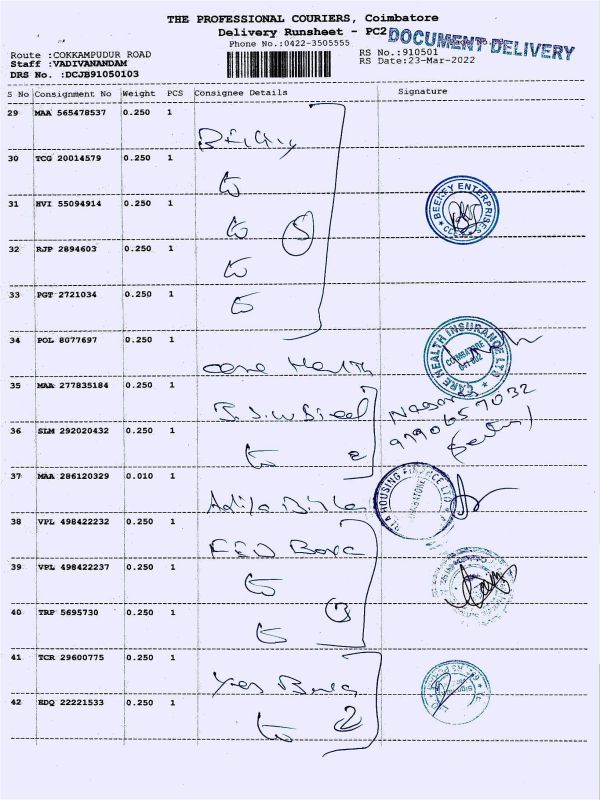 THE PROFESSIONAL COURIERS, Coimbatore
Delivery Runsheet - PC2
DOCUMENT DELIVERY
Phone No.:0422-3505555
Route :COKKAMPUDUR ROAD
RS No.:910501
Staff :VADIVANANDAM
RS Date:23-Mar-2022
DRS No. :DCJB91050103
S No Consignment No Weight PCS Consignee Details Signature
29 MAA 565478537 0.250 1
30 TCG 20014579 0.250 1
31 HVI 55094914 0.250 1 5
BEEKEY ENTERPRISES
32 RJP 2894603 0.250 1
33 PGT 2721034 0.250 1
34 POL 8077697 0.250 1 Care Health
CARE HEALTH INSURANCE LTD
COIMBATORE
35 MAA 277835184 0.250 1
36 SLM 292020432 0.250 1 2
9790657032
37 MAA 286120329 0.010 1 Aditya Birla
HOUSING FINANCE LTD
38 VPL 498422232 0.250 1
39 VPL 498422237 0.250 1
40 TRP 5695730 0.250 1 3
41 TCR 29600775 0.250 1 Yes Bank
42 EDQ 22221533 0.250 1 2